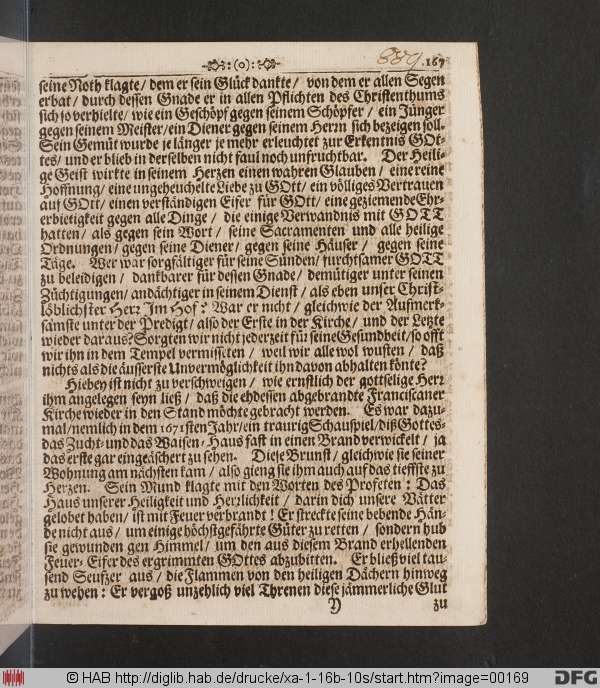 :(0): 889 167
seine Noth klagte / dem er sein Glück dankte / von dem er allen Segen
erbat / durch dessen Gnade er in allen Pflichten des Christenthums
sich so verhielte / wie ein Geschöpf gegen seinem Schöpfer / ein Jünger
gegen seinem Meister / ein Diener gegen seinem Herrn sich bezeigen soll.
Sein Gemüt wurde je länger je mehr erleuchtet zur Erkentnis GOt-
tes / und er blieb in derselben nicht faul noch unfruchtbar. Der Heili-
ge Geist wirkte in seinem Herzen einen wahren Glauben / eine reine
Hoffnung / eine ungeheuchelte Liebe zu GOtt / ein völliges Vertrauen
auf GOtt / einen verständigen Eifer für GOtt / eine geziemende Ehr-
erbietigkeit gegen alle Dinge / die einige Verwandnis mit GOTT
hatten / als gegen sein Wort / seine Sacramenten und alle heilige
Ordnungen / gegen seine Diener / gegen seine Häuser / gegen seine
Täge. Wer war sorgfältiger für seine Sünden / furchtsamer GOTT
zu beleidigen / dankbarer für dessen Gnade / demütiger unter seinen
Züchtigungen / andächtiger in seinem Dienst / als eben unser Christ-
löblichster Herr Im Hof? War er nicht / gleichwie der Aufmerk-
samste unter der Predigt / also der Erste in der Kirche / und der Letzte
wieder daraus? Sorgten wir nicht jederzeit für seine Gesundheit / so offt
wir ihn in dem Tempel vermissten / weil wir alle wol wusten / daß
nichts als die äusserste Unvermöglichkeit ihn davon abhalten könte?
Hiebey ist nicht zu verschweigen / wie ernstlich der gottselige Herr
ihm angelegen seyn ließ / daß die ehdessen abgebrandte Franciscaner
Kirche wieder in den Stand möchte gebracht werden. Es war dazu-
mal / nemlich in dem 1671sten Jahr / ein traurig Schauspiel / diß Gottes-
das Zucht- und das Waisen-Haus fast in einen Brand verwickelt / ja
das erste gar eingeäschert zu sehen. Diese Brunst / gleichwie sie seiner
Wohnung am nächsten kam / also gieng sie ihm auch auf das tieffste zu
Herzen. Sein Mund klagte mit den Worten des Profeten: Das
Haus unserer Heiligkeit und Herzlichkeit / darin dich unsere Vätter
gelobet haben / ist mit Feuer verbrandt! Er streckte seine bebende Hän-
de nicht aus / um einige höchstgefährte Güter zu retten / sondern hub
sie gewunden gen Himmel / um den aus diesem Brand erhellenden
Feuer-Eifer des ergrimmten GOttes abzubitten. Er bließ viel tau-
send Seufzer aus / die Flammen von den heiligen Dächern hinweg
zu wehen: Er vergoß unzehlich viel Threnen diese jämmerliche Glut
Y zu
© HAB http://diglib.hab.de/drucke/xa-1-16b-10s/start.htm?image=00169 DFG